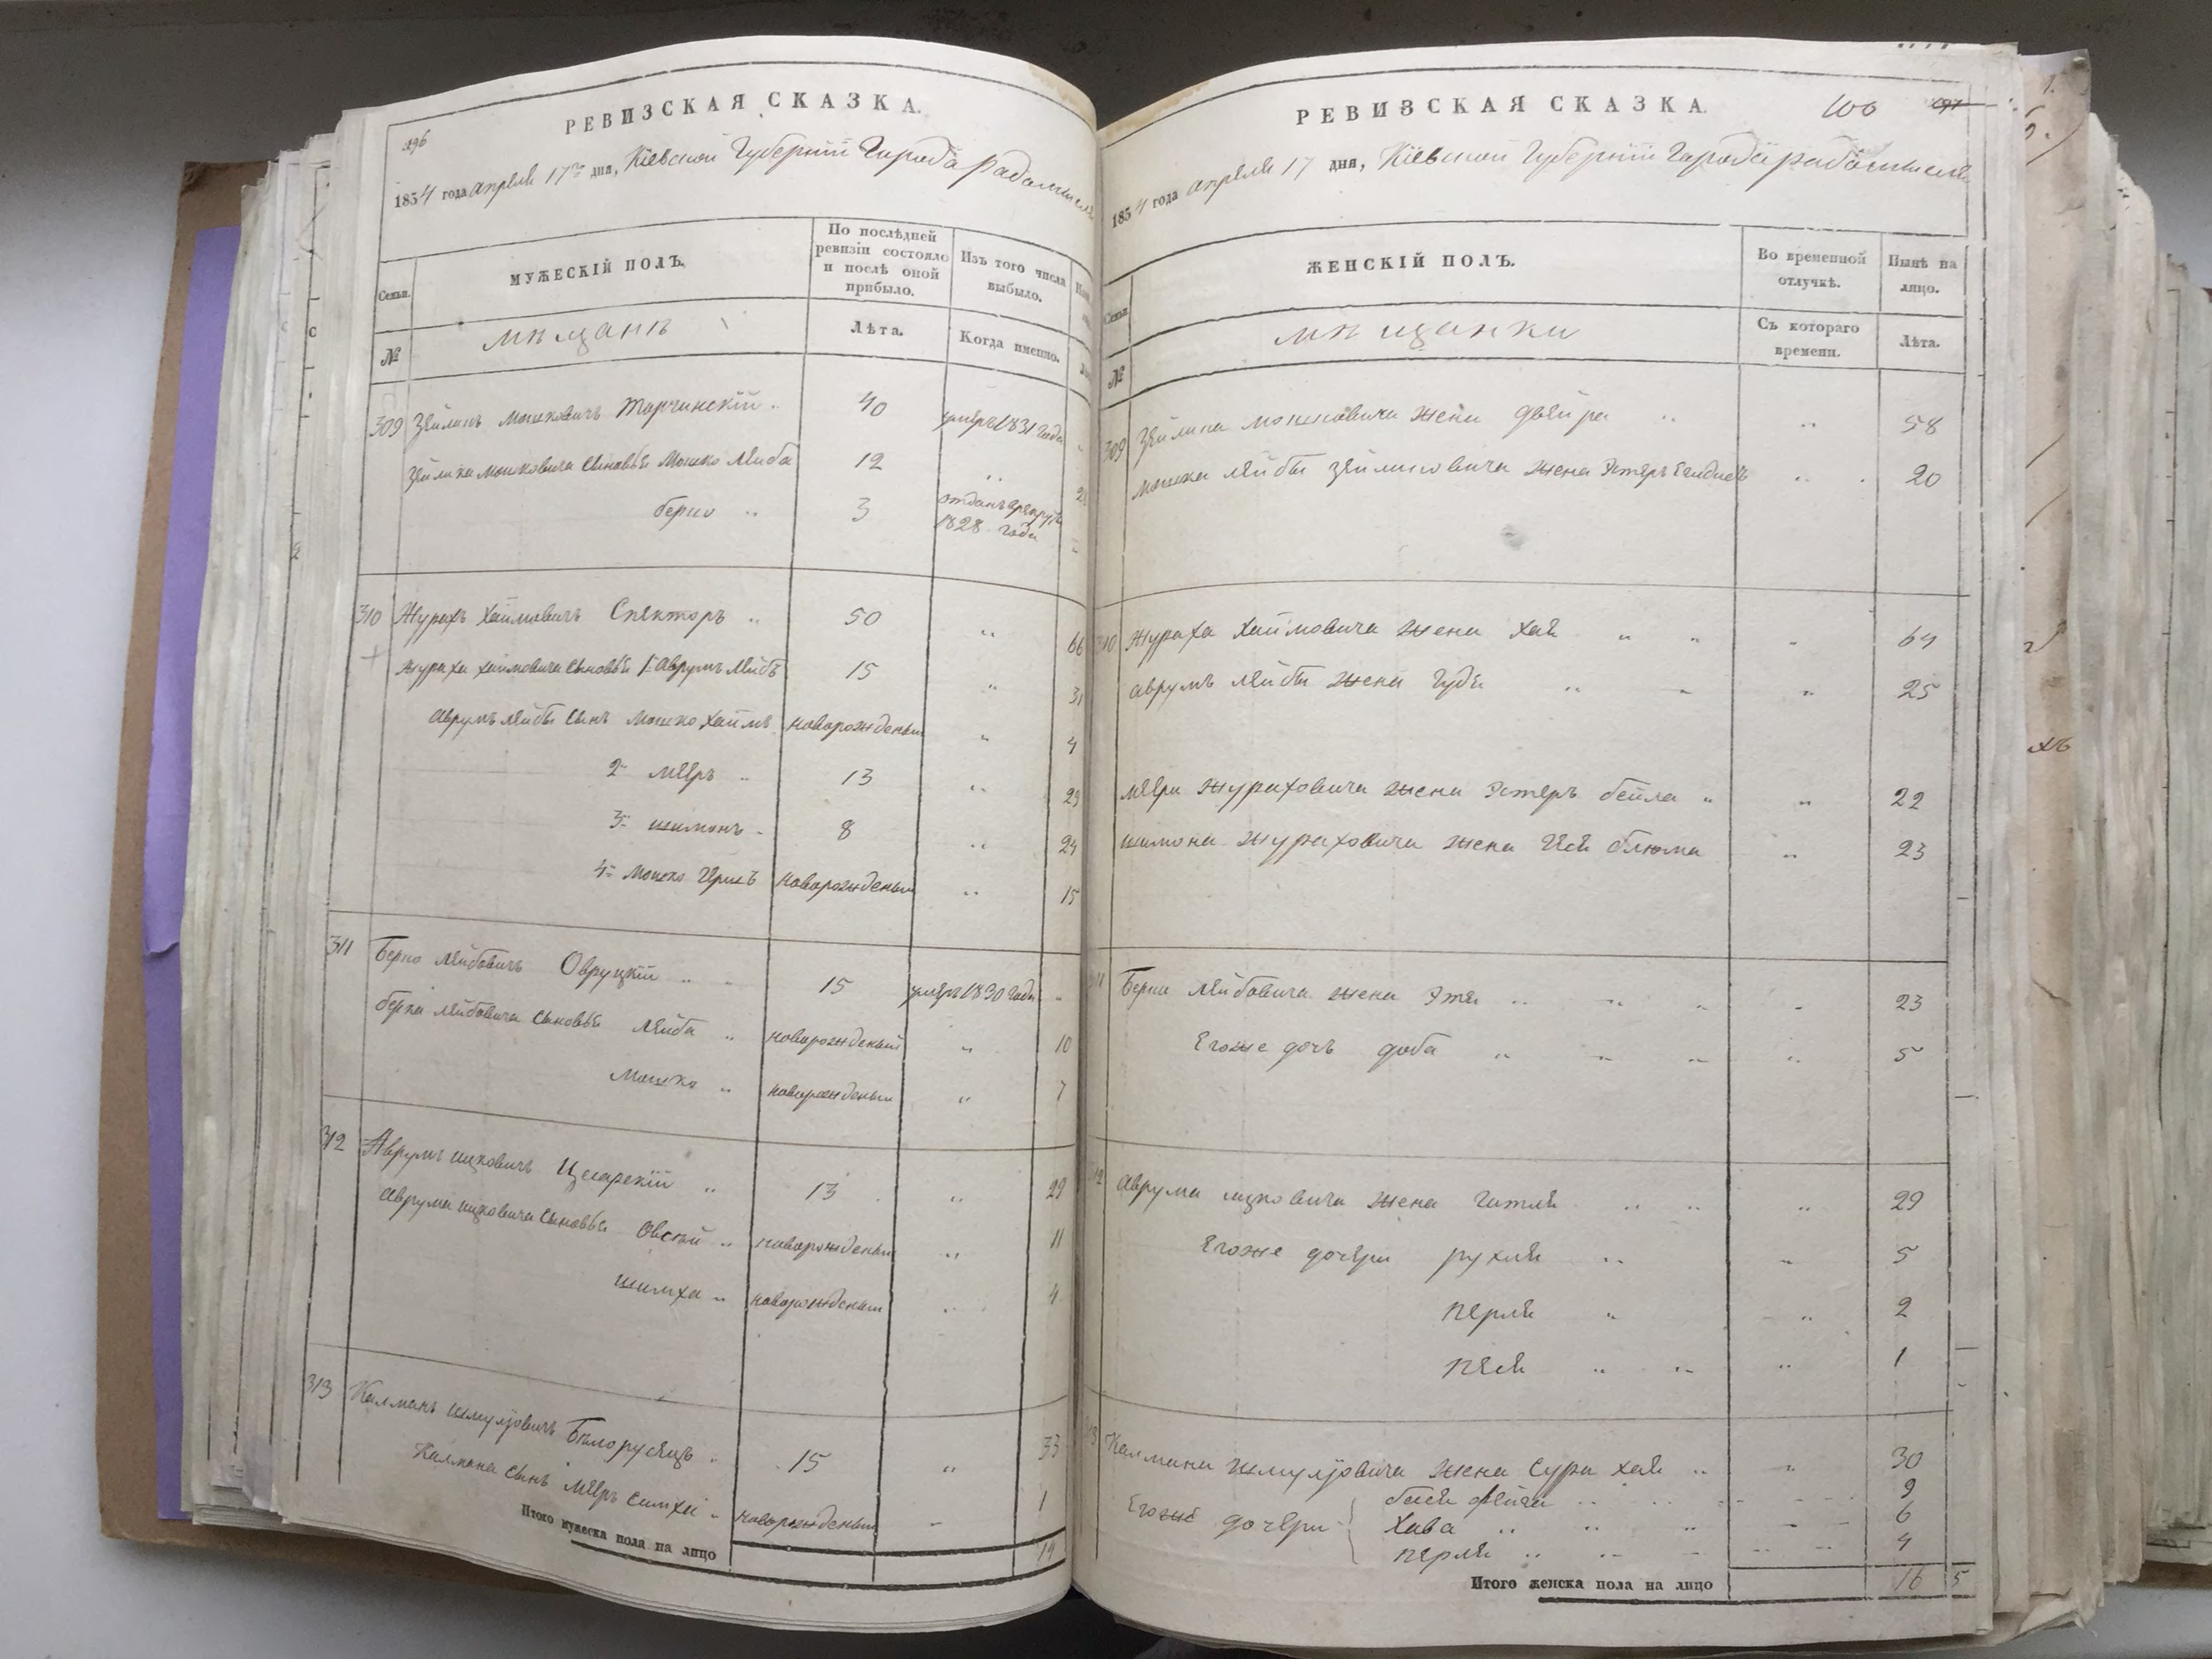 196
РЕВИЗСКАЯ СКАЗКА.
1854 года апреля 17го дня, Кіевской Губерніи Города Радомысля
Семьи.
МУЖЕСКІЙ ПОЛЪ.
По послѣдней ревизіи состояло и послѣ оной прибыло.
Изъ того числа выбыло.
№
мѣщанъ
Лѣта.
Когда именно.
309 Зейликъ Мошковичъ Торчинскій 40 умеръ 1831 года
Зейлика Мошковича сыновья Мошко Лейба 12
берко 3 отданъ врекруты 1828 года
310 Журахъ Хаимовичъ Спекторъ 50 66
Жураха Хаимовича сыновья 1й Аврумъ Лейбъ 15 31
Аврумъ Лейбы сынъ Мошко Хаимъ новорожденый 4
2й Мееръ 13 29
3й шимонъ 8 24
4й Мошко Герш новорожденый 15
311 Берко Лейбовичъ Овруцкій 15 умеръ 1830 года
берка Лейбовича сыновья Лейба новорожденый 10
Мошко новорожденый 7
312 Аврумъ ицковичъ Цесарскій 13 29
Аврума ицковича сыновья Овсей новорожденый 11
шимха новорожденый 4
313 Калманъ шмулёвичъ Бѣлорусецъ 15 33
Калмана сынъ Меер Симха новорожденый 1
Итого мужеска пола на лицо 14
РЕВИЗСКАЯ СКАЗКА.
100
1854 года апреля 17 дня, Кіевской Губерніи Города радомысля
Семьи.
ЖЕНСКІЙ ПОЛЪ.
Во временной отлучкѣ.
Нынѣ на лицо.
№
мѣщанки
Съ котораго времени.
Лѣта.
309 Зейлика мошковича жена двейра 58
мошка лейбы зейликовича жена Эстеръ 20
310 жураха хаимовича жена хая 64
аврумъ лейбы жена Гудя 25
меера жураховича жена Эстеръ бейла 22
шимона жураховича жена блюма 23
Берка лейбовича жена Этя 23
Егоже дочь доба 5
аврума ицковича жена Гитля 29
Егоже дочери рухля 5
перля 2
песя 1
Калмана шмулёвича жена Сура хая 30
Егоже дочери бася фейга 9
хава 6
перля 4
Итого женска пола на лицо 16 5